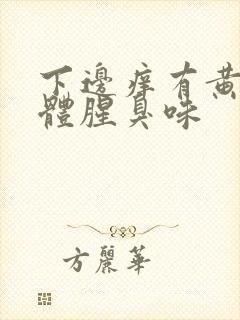 下邊痒有黃
體腥臭味
方麗華